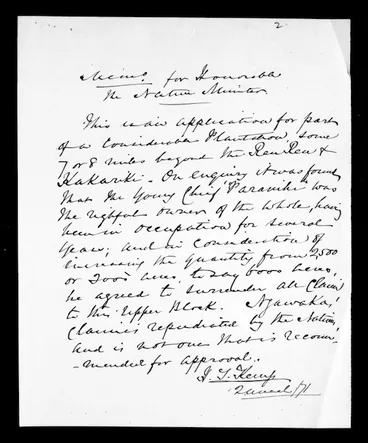 2
Memo. for Honorable
The Native Minister
This is an application for part
of a considerable Plantation, some
7 or 8 miles beyond the Rewa Rewa &
Kakariki - On enquiry it was found
that the young Chief Paraniki was
the rightful owner of the whole, having
been in occupation for several
years; and in consideration of
increasing the quantity from 2,500
or 3000 acres to say 6000 acres,
he agreed to surrender all Claim
to this Upper Block. Ngawaka's
Claim is repudiated by the Natives,
and is not one that is recom-
-mended for approval.
H. T. Kemp
2 March /71